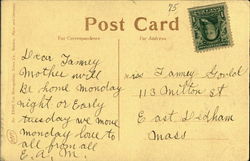 75
Post Card
For Correspondence
For Address
Dear Tamey
Mother will
be home monday
night or Early
tuesday we move
monday love to
all from all
E. A. M.
Miss Tamey Gould
113 Milton St
East Dedham
Mass